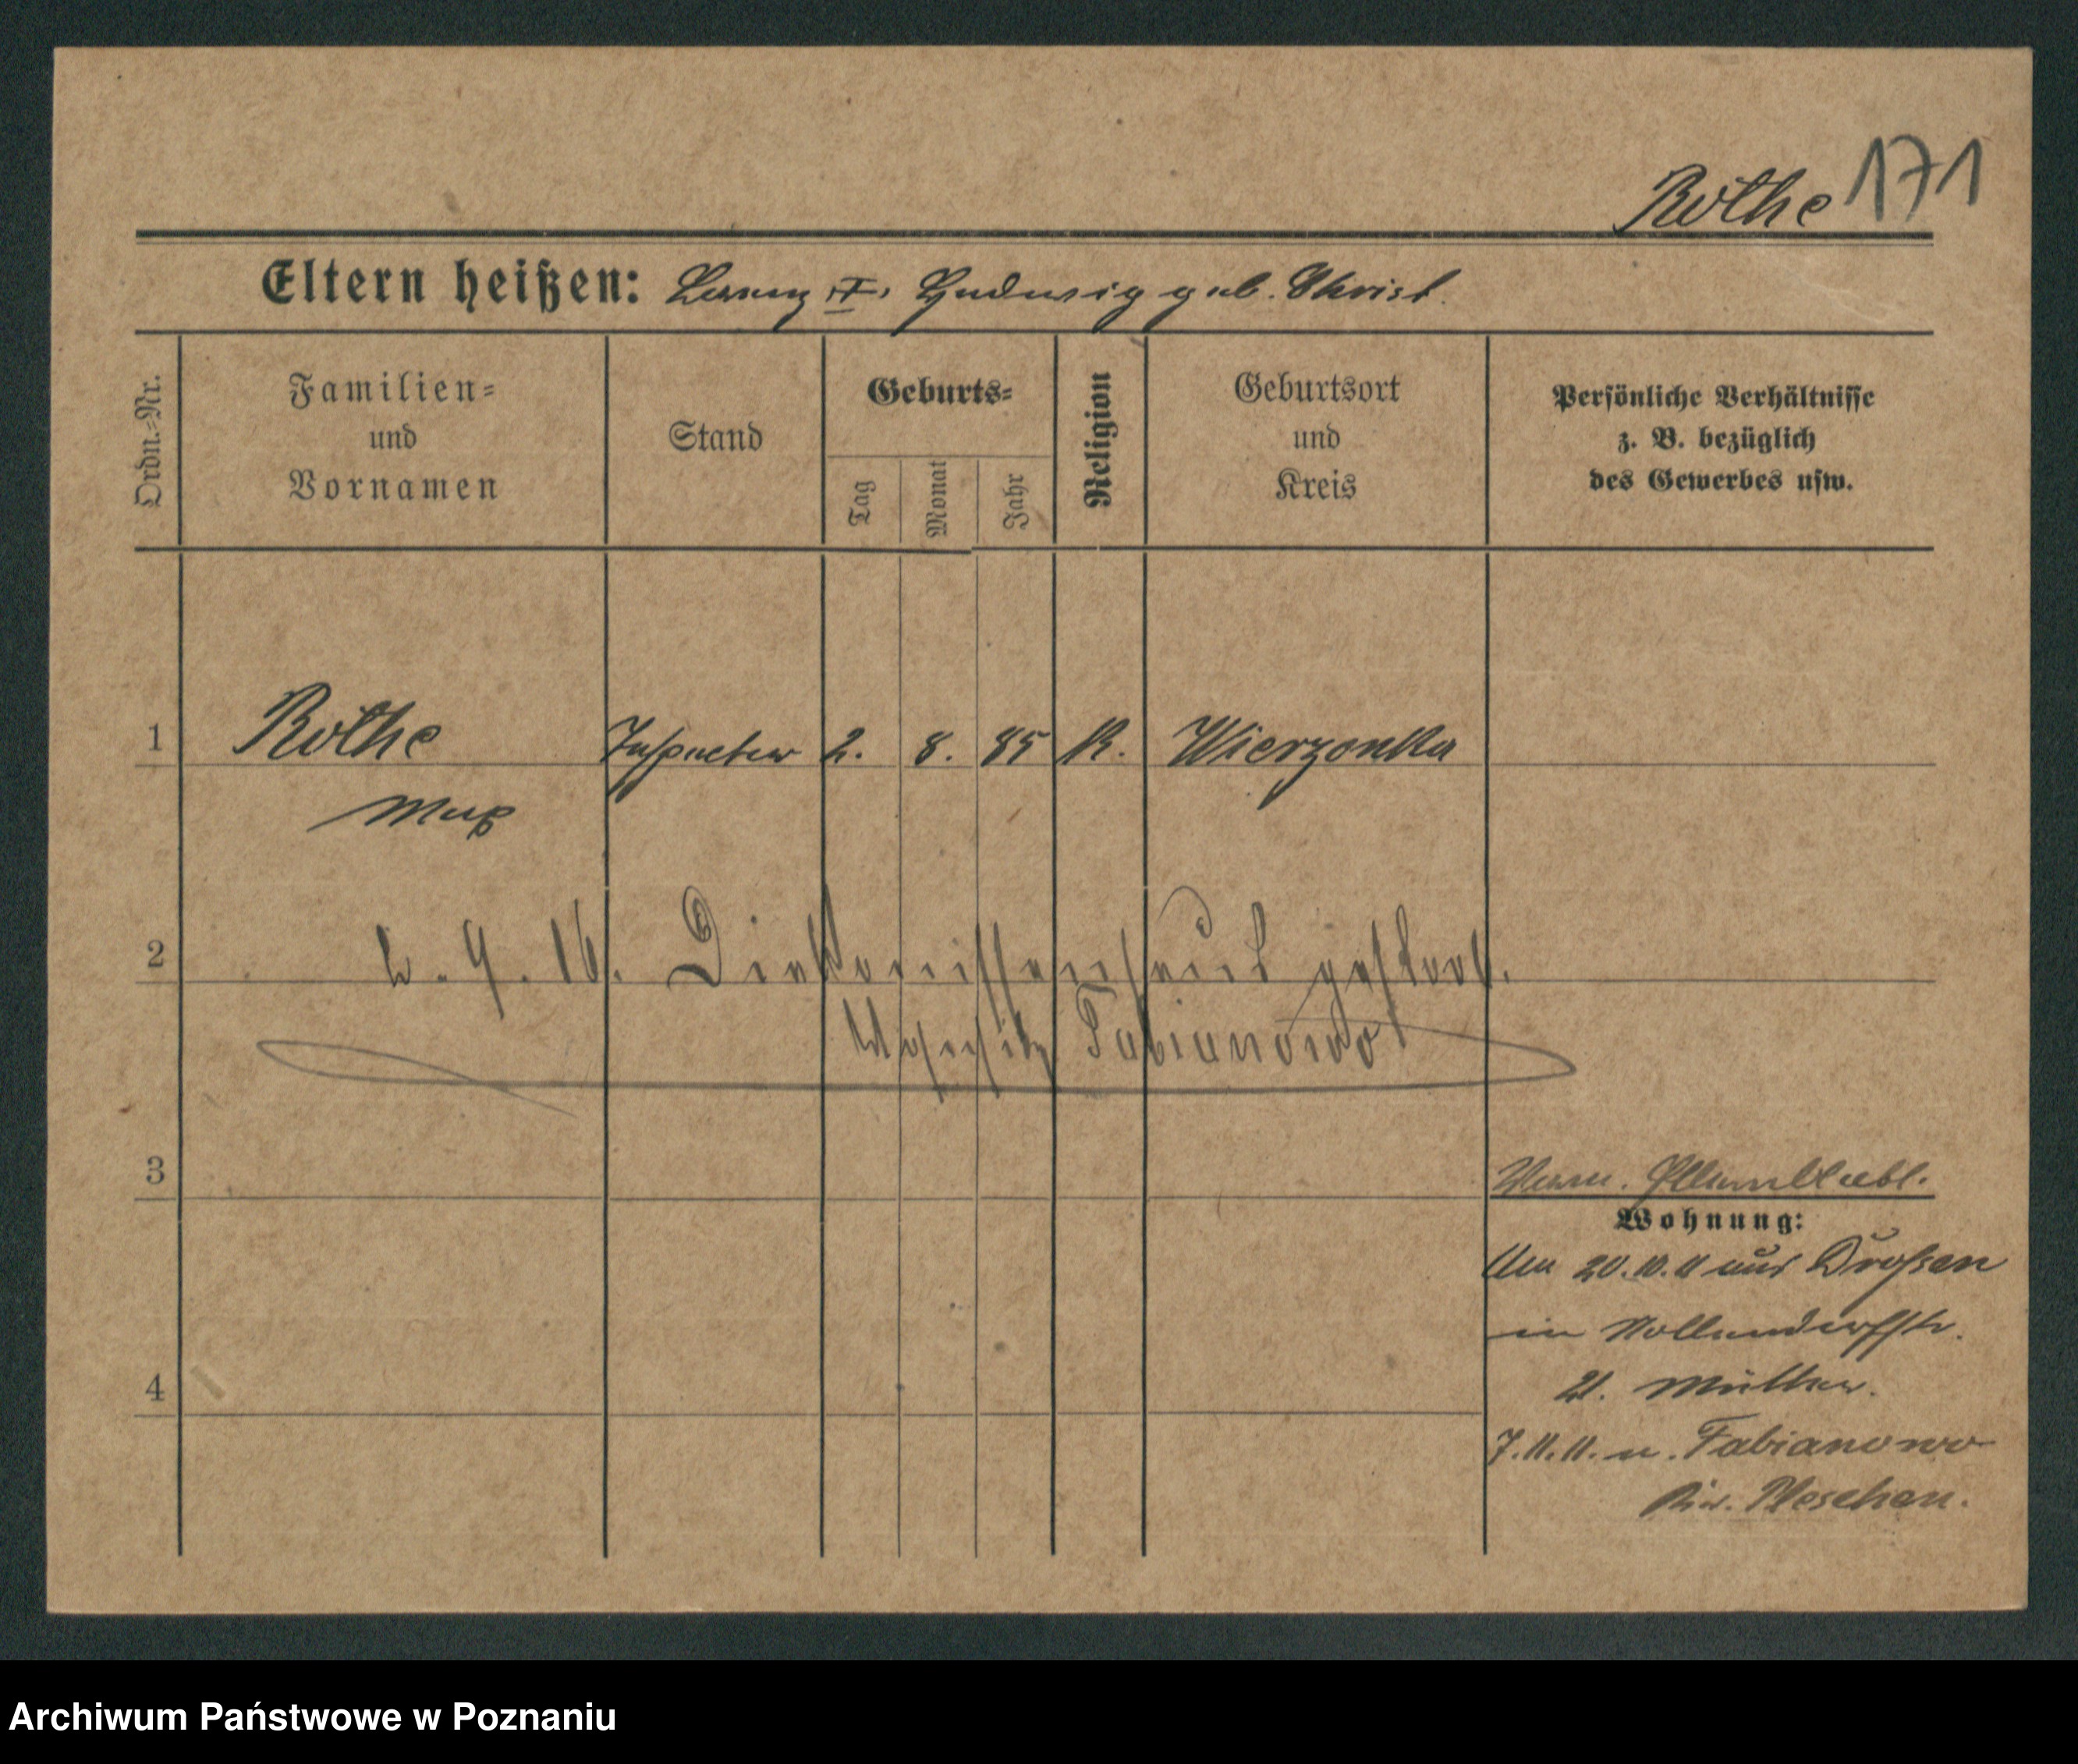 Rothe 171
Eltern heißen: Lorenz u. Hedwig geb. Christ.
Ordn.-Nr.
Familien-
und
Vornamen
Stand
Geburts-
Tag
Monat
Jahr
Religion
Geburtsort
und
Kreis
Persönliche Verhältnisse
z. B. bezüglich
des Gewerbes usw.
1 Rothe Inspector 2. 8. 85 K. Wierzonka
Max
2 9. 16. Diakonissenhaus gestorb.
Wohnsitz Fabianowo
3
Wohnung:
Am 20.10.11 aus Drossen
in Nollendorfstr.
21. Mutter.
4
7.11.11. n. Fabianowo
Kr. Pleschen.
Archiwum Państwowe w Poznaniu